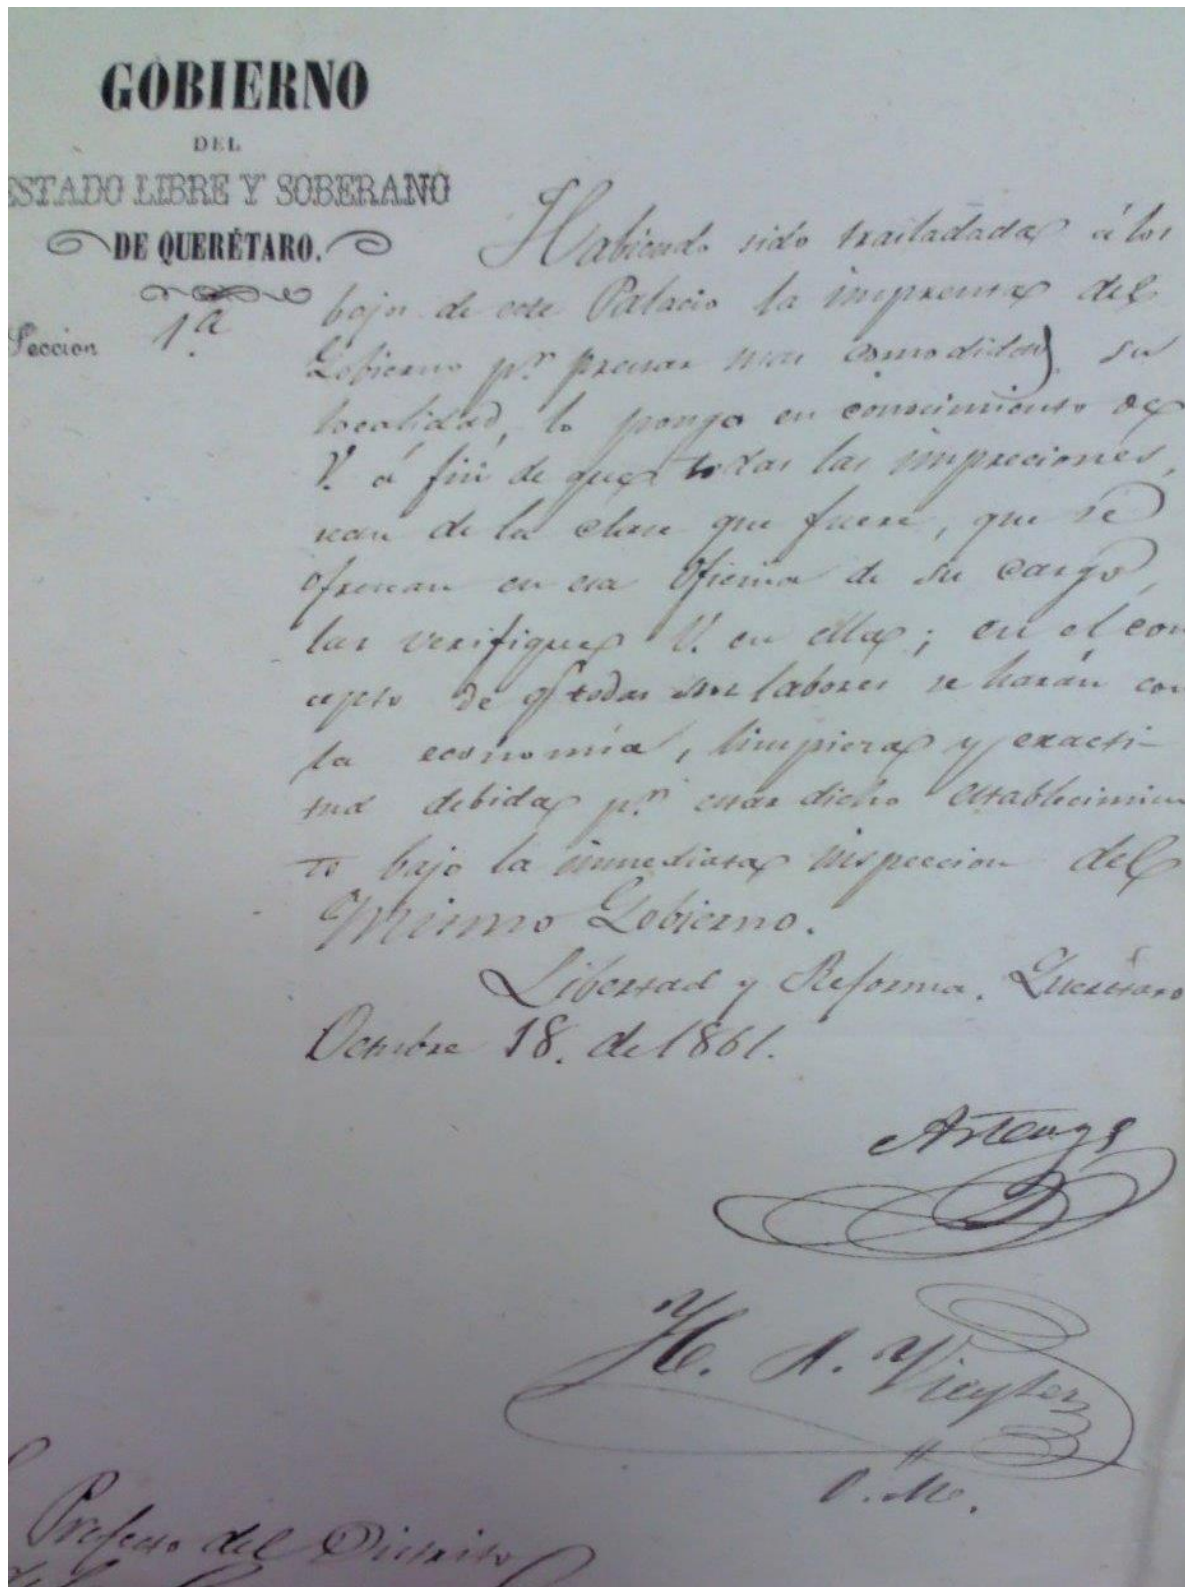 GOBIERNO
DEL
ESTADO LIBRE Y SOBERANO
DE QUERÉTARO.
Seccion 1ª
Habiendo sido trasladada á los
bajos de este Palacio la imprenta del
Gobierno pr. prestar mas comodidad su
localidad, lo pongo en conocimiento de
V. á fin de que todas las impreciones,
sean de la clase que fuere, que se
ofrescan en esa Oficina de su cargo,
las verifique V. en ella; en el con
cepto de q. todas sus labores se harán con
la economía, limpieza y exacti-
tud debida pr. estar dicho establecimien
to bajo la inmediata inspeccion del
Mismo Gobierno.
Libertad y Reforma. Querétaro
Octubre 18. de 1861.
Arteaga
H. A. Vieytez
O. M.
Prefecto del Distrito